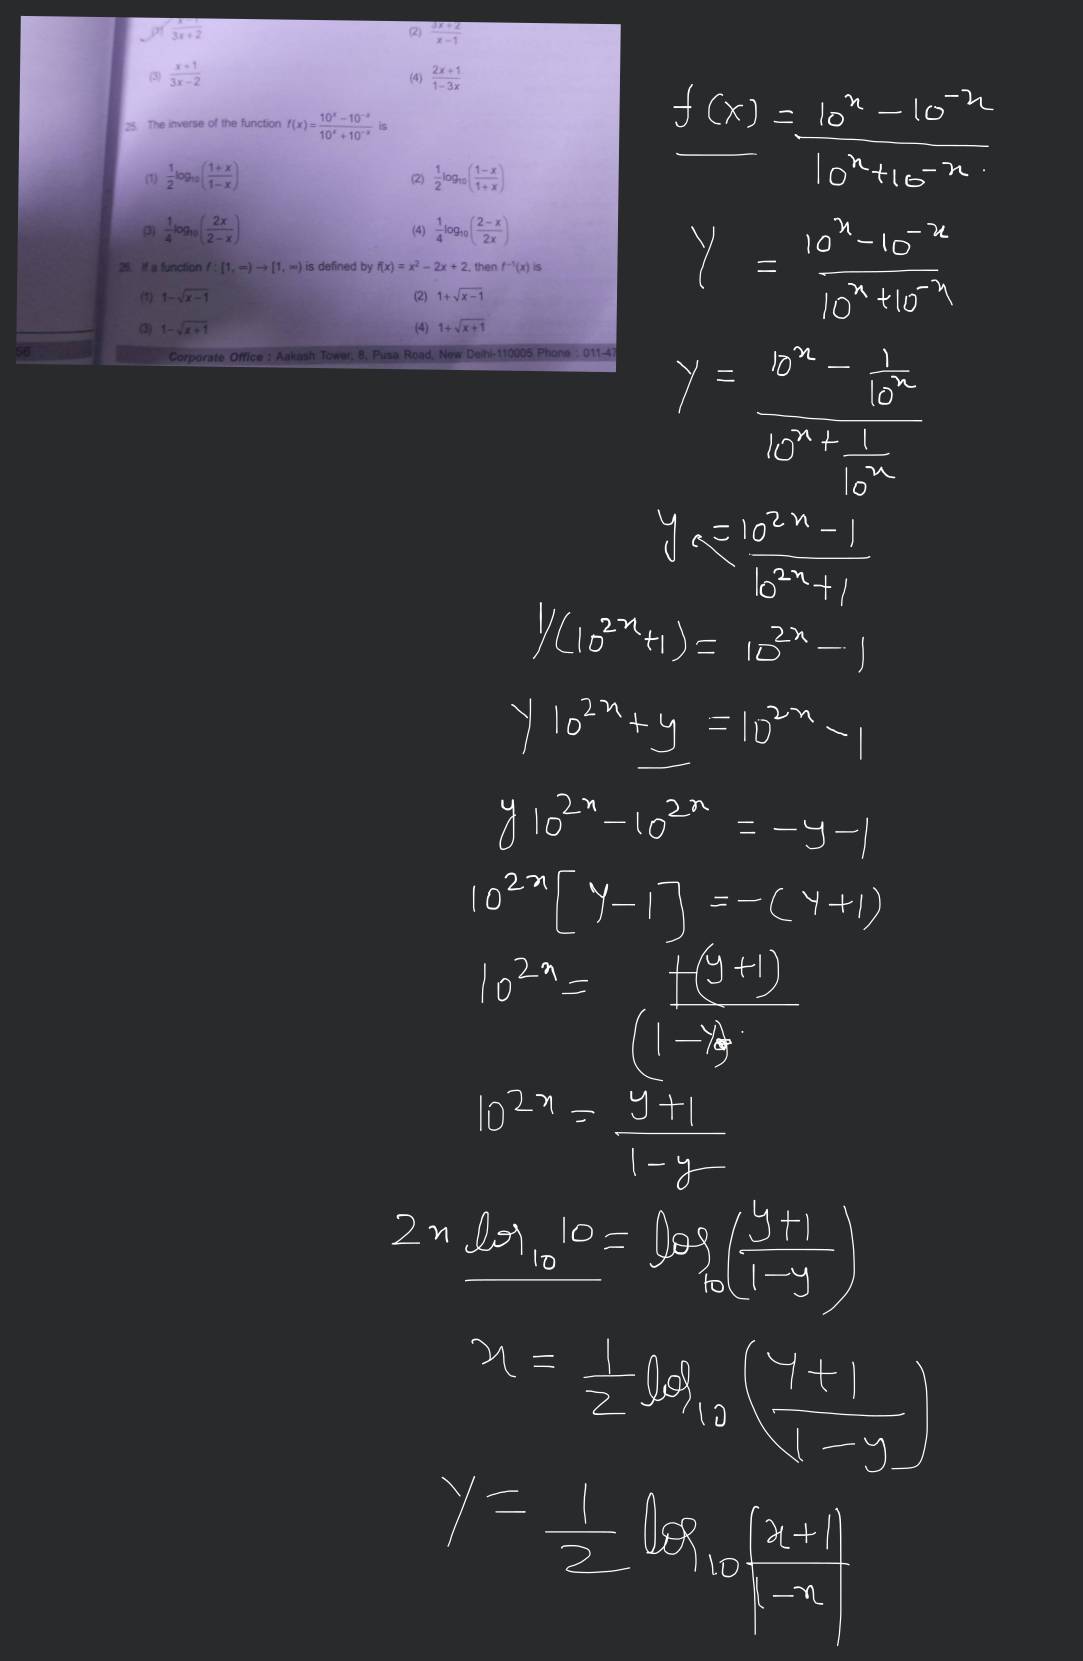 (1) x-1/3x+2 (2) 3x+2/x-1
(3) x+1/3x-2 (4) 2x+1/1-3x
25. The inverse of the function f(x) = 10ˣ - 10⁻ˣ/10ˣ + 10⁻ˣ is
(1) 1/2 log₁₀(1+x/1-x) (2) 1/2 log₁₀(1-x/1+x)
(3) 1/4 log₁₀(2x/2-x) (4) 1/4 log₁₀(2-x/2x)
26. If a function f : [1, ∞) → [1, ∞) is defined by f(x) = x² – 2x + 2, then f⁻¹(x) is
(1) 1-√x-1 (2) 1+√x-1
(3) 1-√x+1 (4) 1+√x+1
56 Corporate Office : Aakash Tower, 8, Pusa Road, New Delhi-110005 Phone : 011-47
f(x) = 10ˣ - 10⁻ˣ/10ˣ+10⁻ˣ
Y = 10ˣ-10⁻ˣ/10ˣ+10⁻ˣ
Y = 10ˣ - 1/10ˣ / 10ˣ + 1/10ˣ
y = 10²ˣ - 1/10²ˣ+1
Y(10²ˣ+1) = 10²ˣ - 1
Y 10²ˣ + y = 10²ˣ - 1
y 10²ˣ - 10²ˣ = -y-1
10²ˣ[Y-1] = -(Y+1)
10²ˣ = +(y+1)/(1-y)
10²ˣ = y+1/1-y
2x log₁₀10 = log₁₀(y+1/1-y)
x = 1/2 log₁₀(y+1/1-y)
Y = 1/2 log₁₀(x+1/1-x)